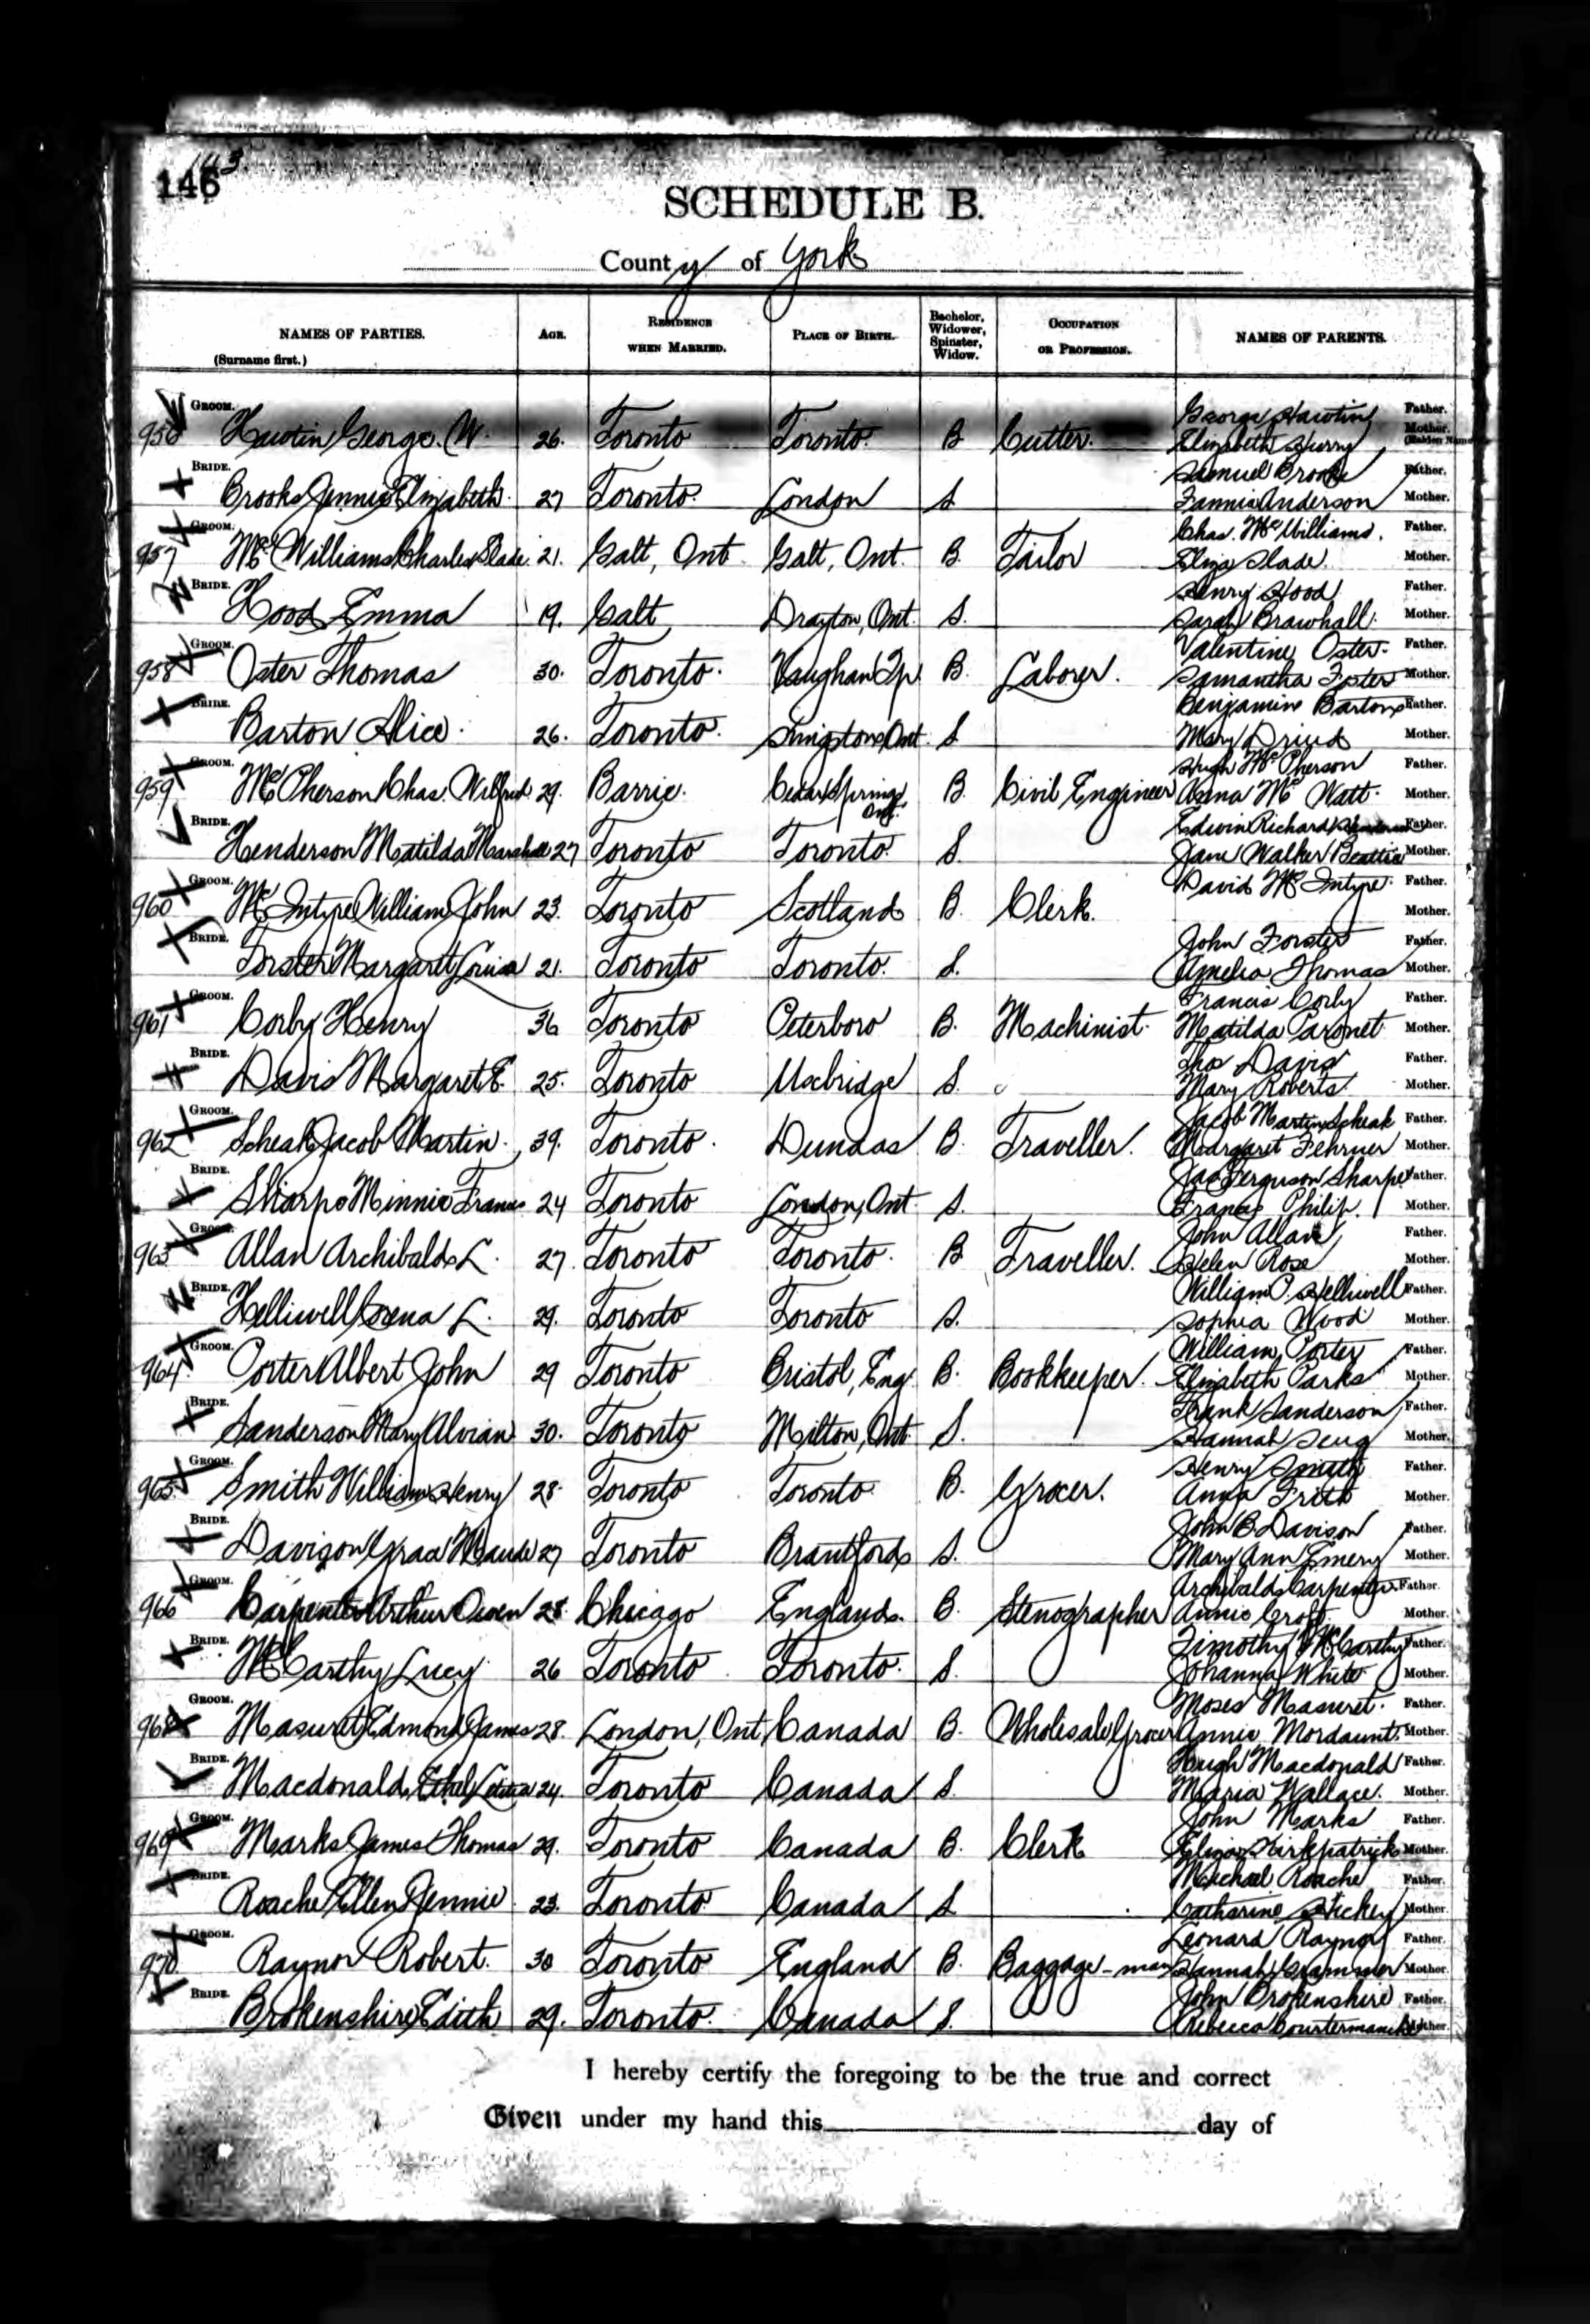 146
143
SCHEDULE B.
County of York
NAMES OF PARTIES. (Surname first.) AGE. RESIDENCE WHEN MARRIED. PLACE OF BIRTH. Bachelor, Widower, Spinster, Widow. OCCUPATION OR PROFESSION. NAMES OF PARENTS.
George Hawtin Father.
956 GROOM. Hawtin George. W. 26. Toronto Toronto. B Cutter. Elizabeth Mother. (Maiden Name
Samuel Brooks Father.
BRIDE. Brooks Jennie Elizabeth. 27 Toronto. London S Fannie Anderson Mother.
Chas. McWilliams. Father.
957 GROOM. McWilliams Charles Slade. 21. Galt, Ont Galt, Ont. B. Tailor Eliza Slade. Mother.
Henry Hood Father.
BRIDE. Hood Emma 19. Galt Drayton, Ont. S. Sarah Mother.
Valentine Oster. Father.
958 GROOM. Oster Thomas 30. Toronto. Vaughan Tp. B. Laborer. Samantha Foster Mother.
Benjamine Barton Father.
BRIDE. Barton Alice. 26. Toronto. Ont. S Mary Mother.
Hugh McPherson Father.
959 GROOM. McPherson Chas. Wilfred 29. Barrie. Cedar Springs Ont. B. Civil Engineer Anna McWatt. Mother.
Edwin Richard Henderson Father.
BRIDE. Henderson Matilda Marshall 27 Toronto Toronto. S. Jane Walker Beattie Mother.
David McIntyre. Father.
960 GROOM. McIntyre William John 23. Toronto Scotland B. Clerk. Mother.
John Forster Father.
BRIDE. Forster Margaret Louisa 21. Toronto Toronto. S. Amelia Thomas Mother.
Francis Corby Father.
961 GROOM. Corby Henry 36 Toronto Peterboro B. Machinist. Matilda Mother.
Thos Davis Father.
BRIDE. Davis Margaret E. 25. Toronto Uxbridge S. Mary Roberts. Mother.
Jacob Martin Scheak Father.
962 GROOM. Scheak Jacob Martin. 39. Toronto. Dundas B. Traveller. Margaret Fehrner Mother.
Jas Ferguson Sharpe Father.
BRIDE. Sharpe Minnie Frances 24 Toronto London, Ont S. Frances Philip. Mother.
John Allan Father.
963 GROOM. Allan Archibald L. 27. Toronto Toronto. B Traveller. Helen Rose Mother.
William P. Helliwell Father.
BRIDE. Helliwell L. 29. Toronto Toronto S. Sophia Wood Mother.
William Porter Father.
964 GROOM. Porter Albert John 29 Toronto Bristol, Eng. B. Bookkeeper. Elizabeth Parks Mother.
Frank Sanderson Father.
BRIDE. Sanderson Mary Alvian 30. Toronto Milton, Ont. S. Hannah Mother.
Henry Smith Father.
965 GROOM. Smith William Henry 28. Toronto Toronto. B. Grocer. Anna Frith Mother.
John B Davison Father.
BRIDE. Davison Grace Maude 27 Toronto Brantford S. Mary Ann Emery Mother.
Archibald Carpenter Father.
966 GROOM. Carpenter Arthur Owen 28 Chicago England. B. Stenographer Annie Croft. Mother.
Timothy McCarthy Father.
BRIDE. McCarthy Lucy 26 Toronto Toronto. S. Johanna White Mother.
Moses Masuret. Father.
968 GROOM. Masuret Edmond James 28. London, Ont Canada B. Wholesale Grocer Annie Mordaunt. Mother.
Hugh Macdonald Father.
BRIDE. Macdonald, Ethel 24. Toronto Canada S. Maria Wallace. Mother.
John Marks Father.
969 GROOM. Marks James Thomas 29. Toronto Canada B. Clerk Eliza Kirkpatrick Mother.
Michael Roache Father.
BRIDE. Roache Ellen Jennie. 23. Toronto Canada S Catharine Hickey Mother.
Leonard Raynor Father.
970 GROOM. Raynor Robert. 30 Toronto England B. Baggage-man Hannah Mother.
John Brokenshire Father.
BRIDE. Brokenshire, Edith 29. Toronto. Canada S. Rebecca Courtermanche Mother.
I hereby certify the foregoing to be the true and correct
Given under my hand this day of